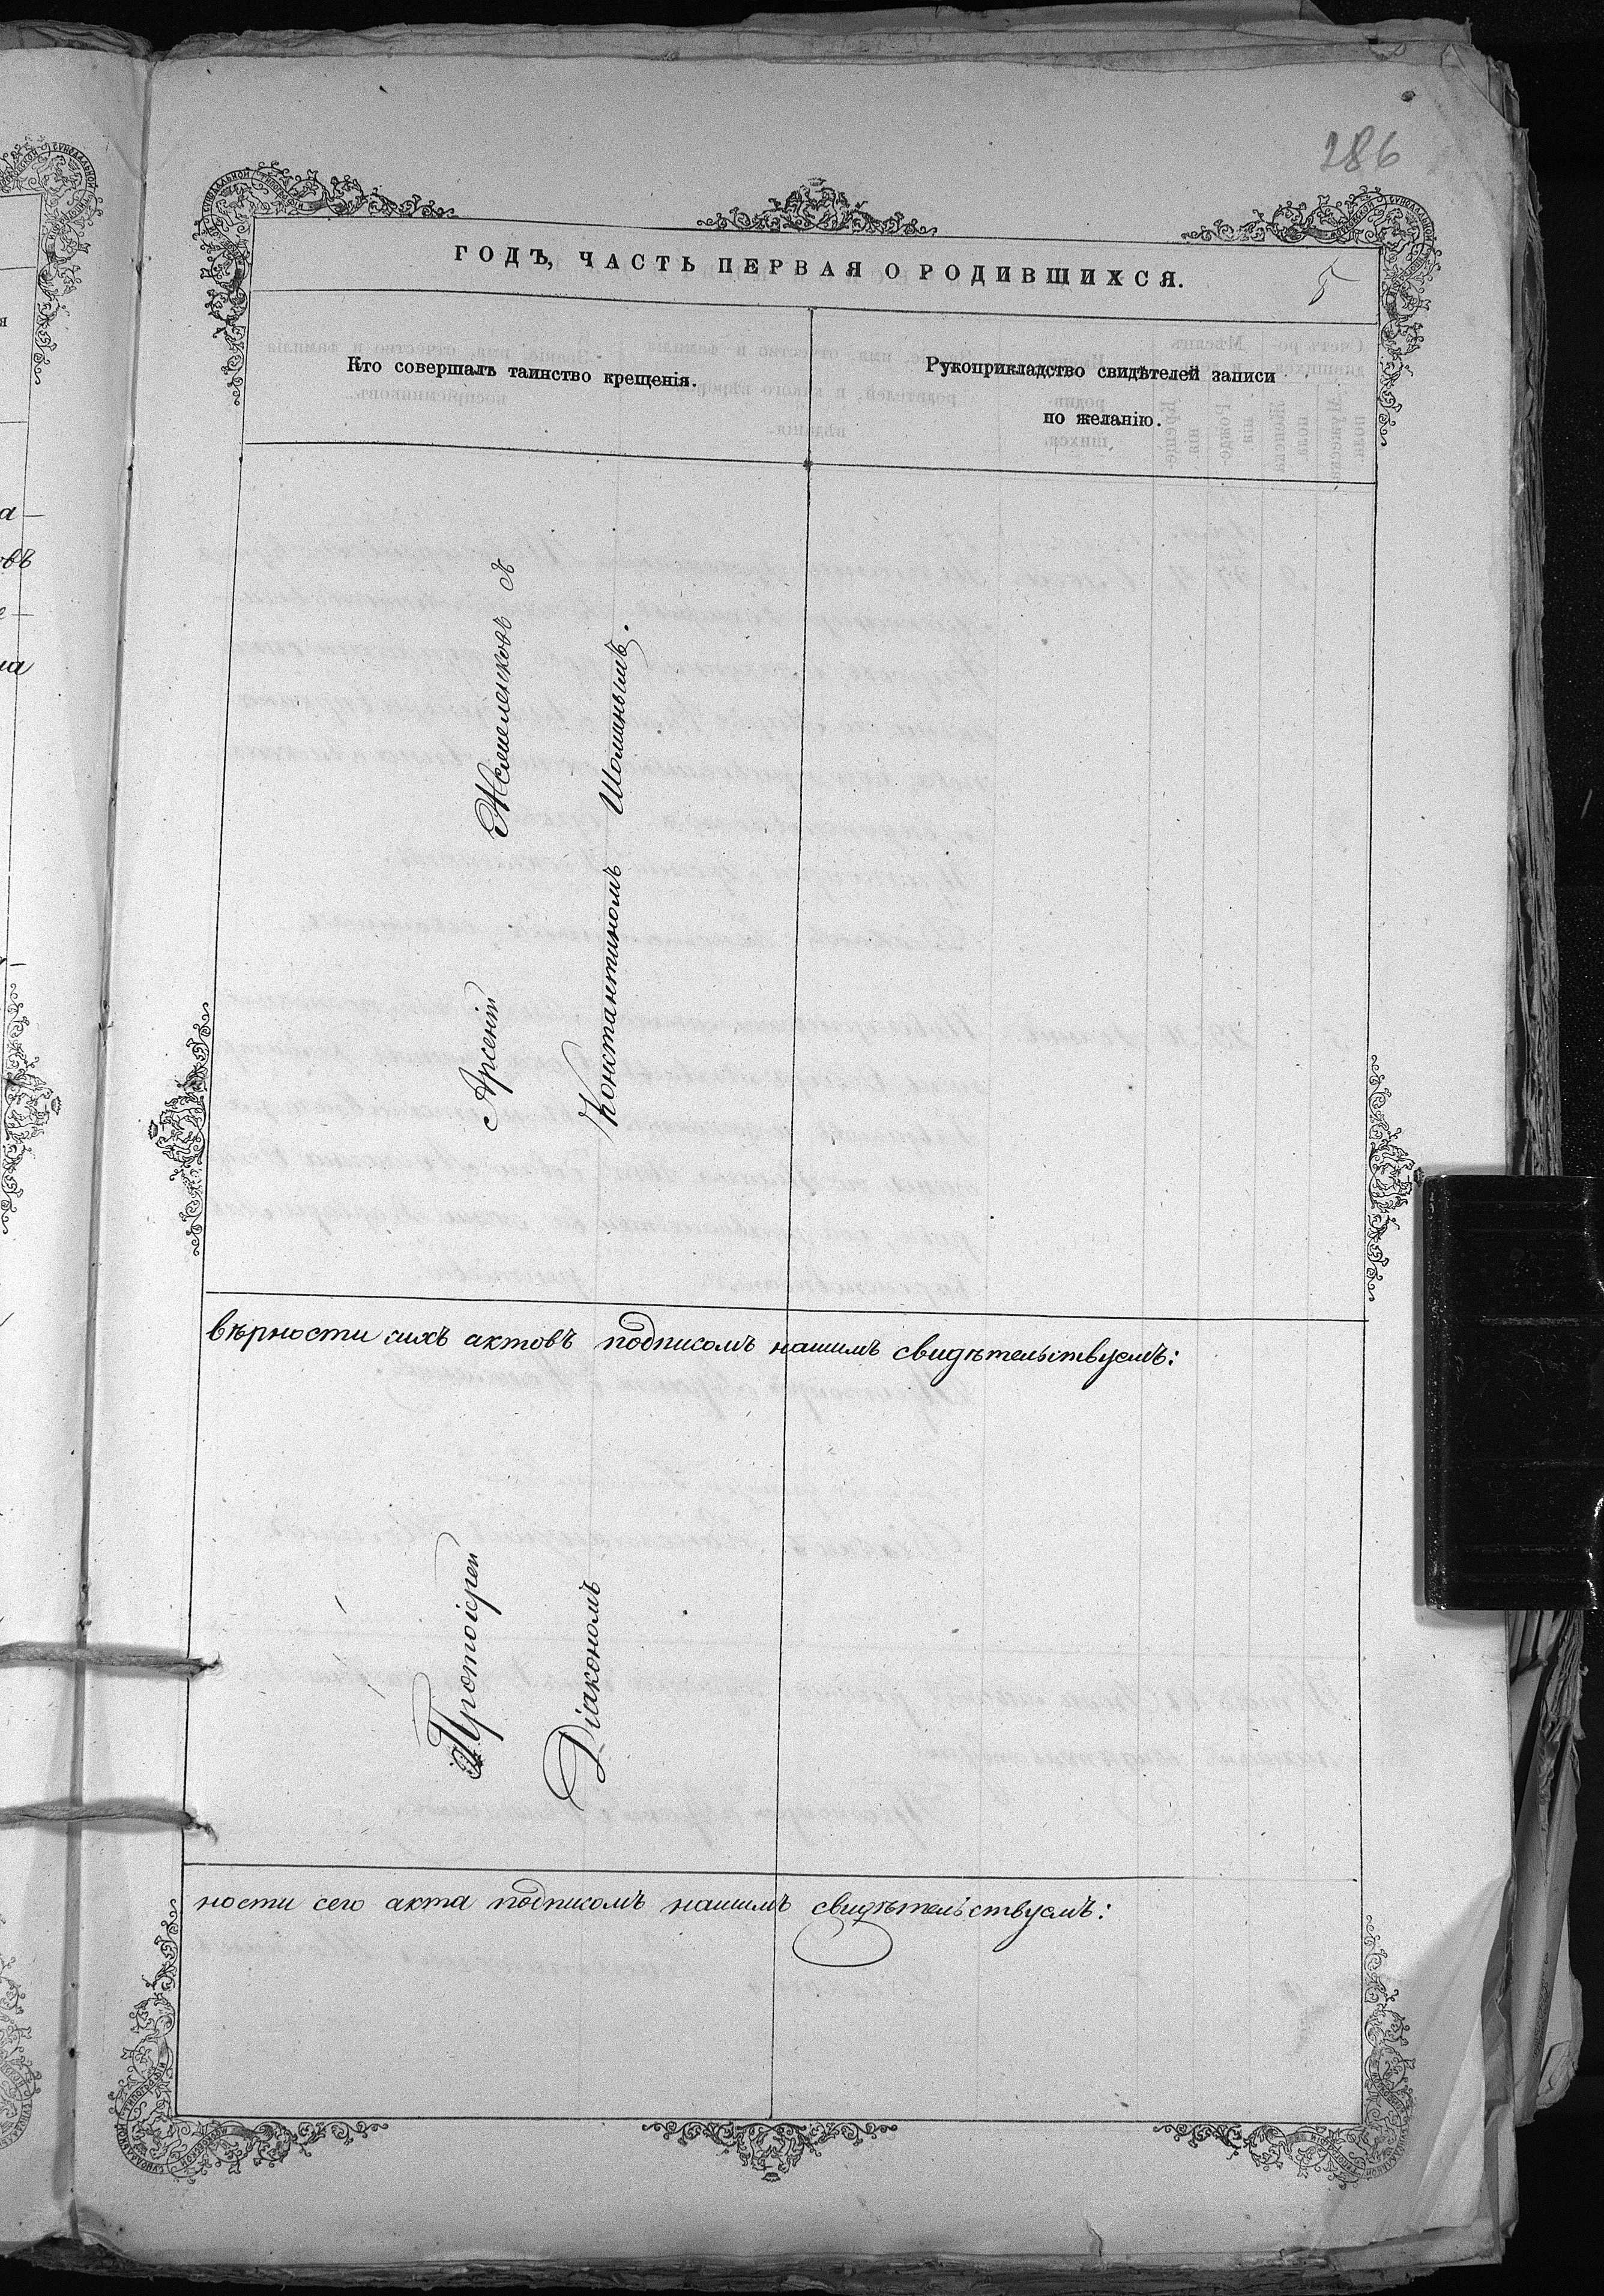 286
ГОДЪ, ЧАСТЬ ПЕРВАЯ О РОДИВШИХСЯ.
5
Кто совершалъ таинство крещенія.
Рукоприкладство свидѣтелей записи
по желанію.
Протоіереи Арсеній съ
Діакономъ Константиномъ Шоминымъ.
вѣрности сихъ актовъ подписомъ нашимъ свидѣтельствуемъ:
ности сего акта подписомъ нашимъ свидѣтельствуемъ: